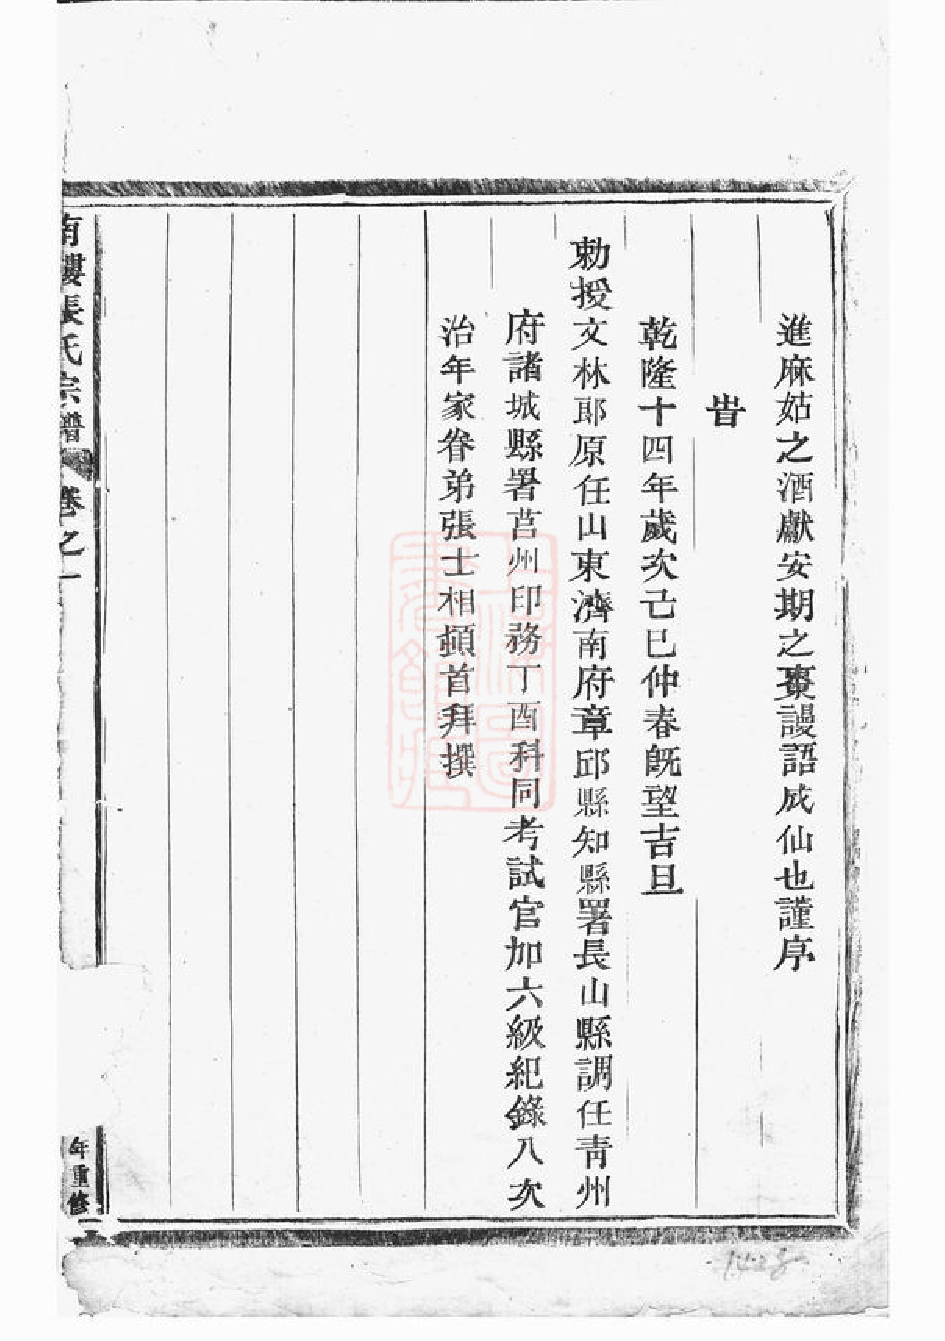 進麻姑之酒獻安期之棗謾語成仙也謹序
旹
乾隆十四年歲次己巳仲春旣望吉旦
勅授文林郎原任山東濟南府章邱縣知縣署長山縣調任靑州
府諸城縣署莒州印務丁酉科同考試官加六級紀錄八次
治年家眷弟張士相頓首拜撰
南樓張氏宗譜
卷之一
年重修